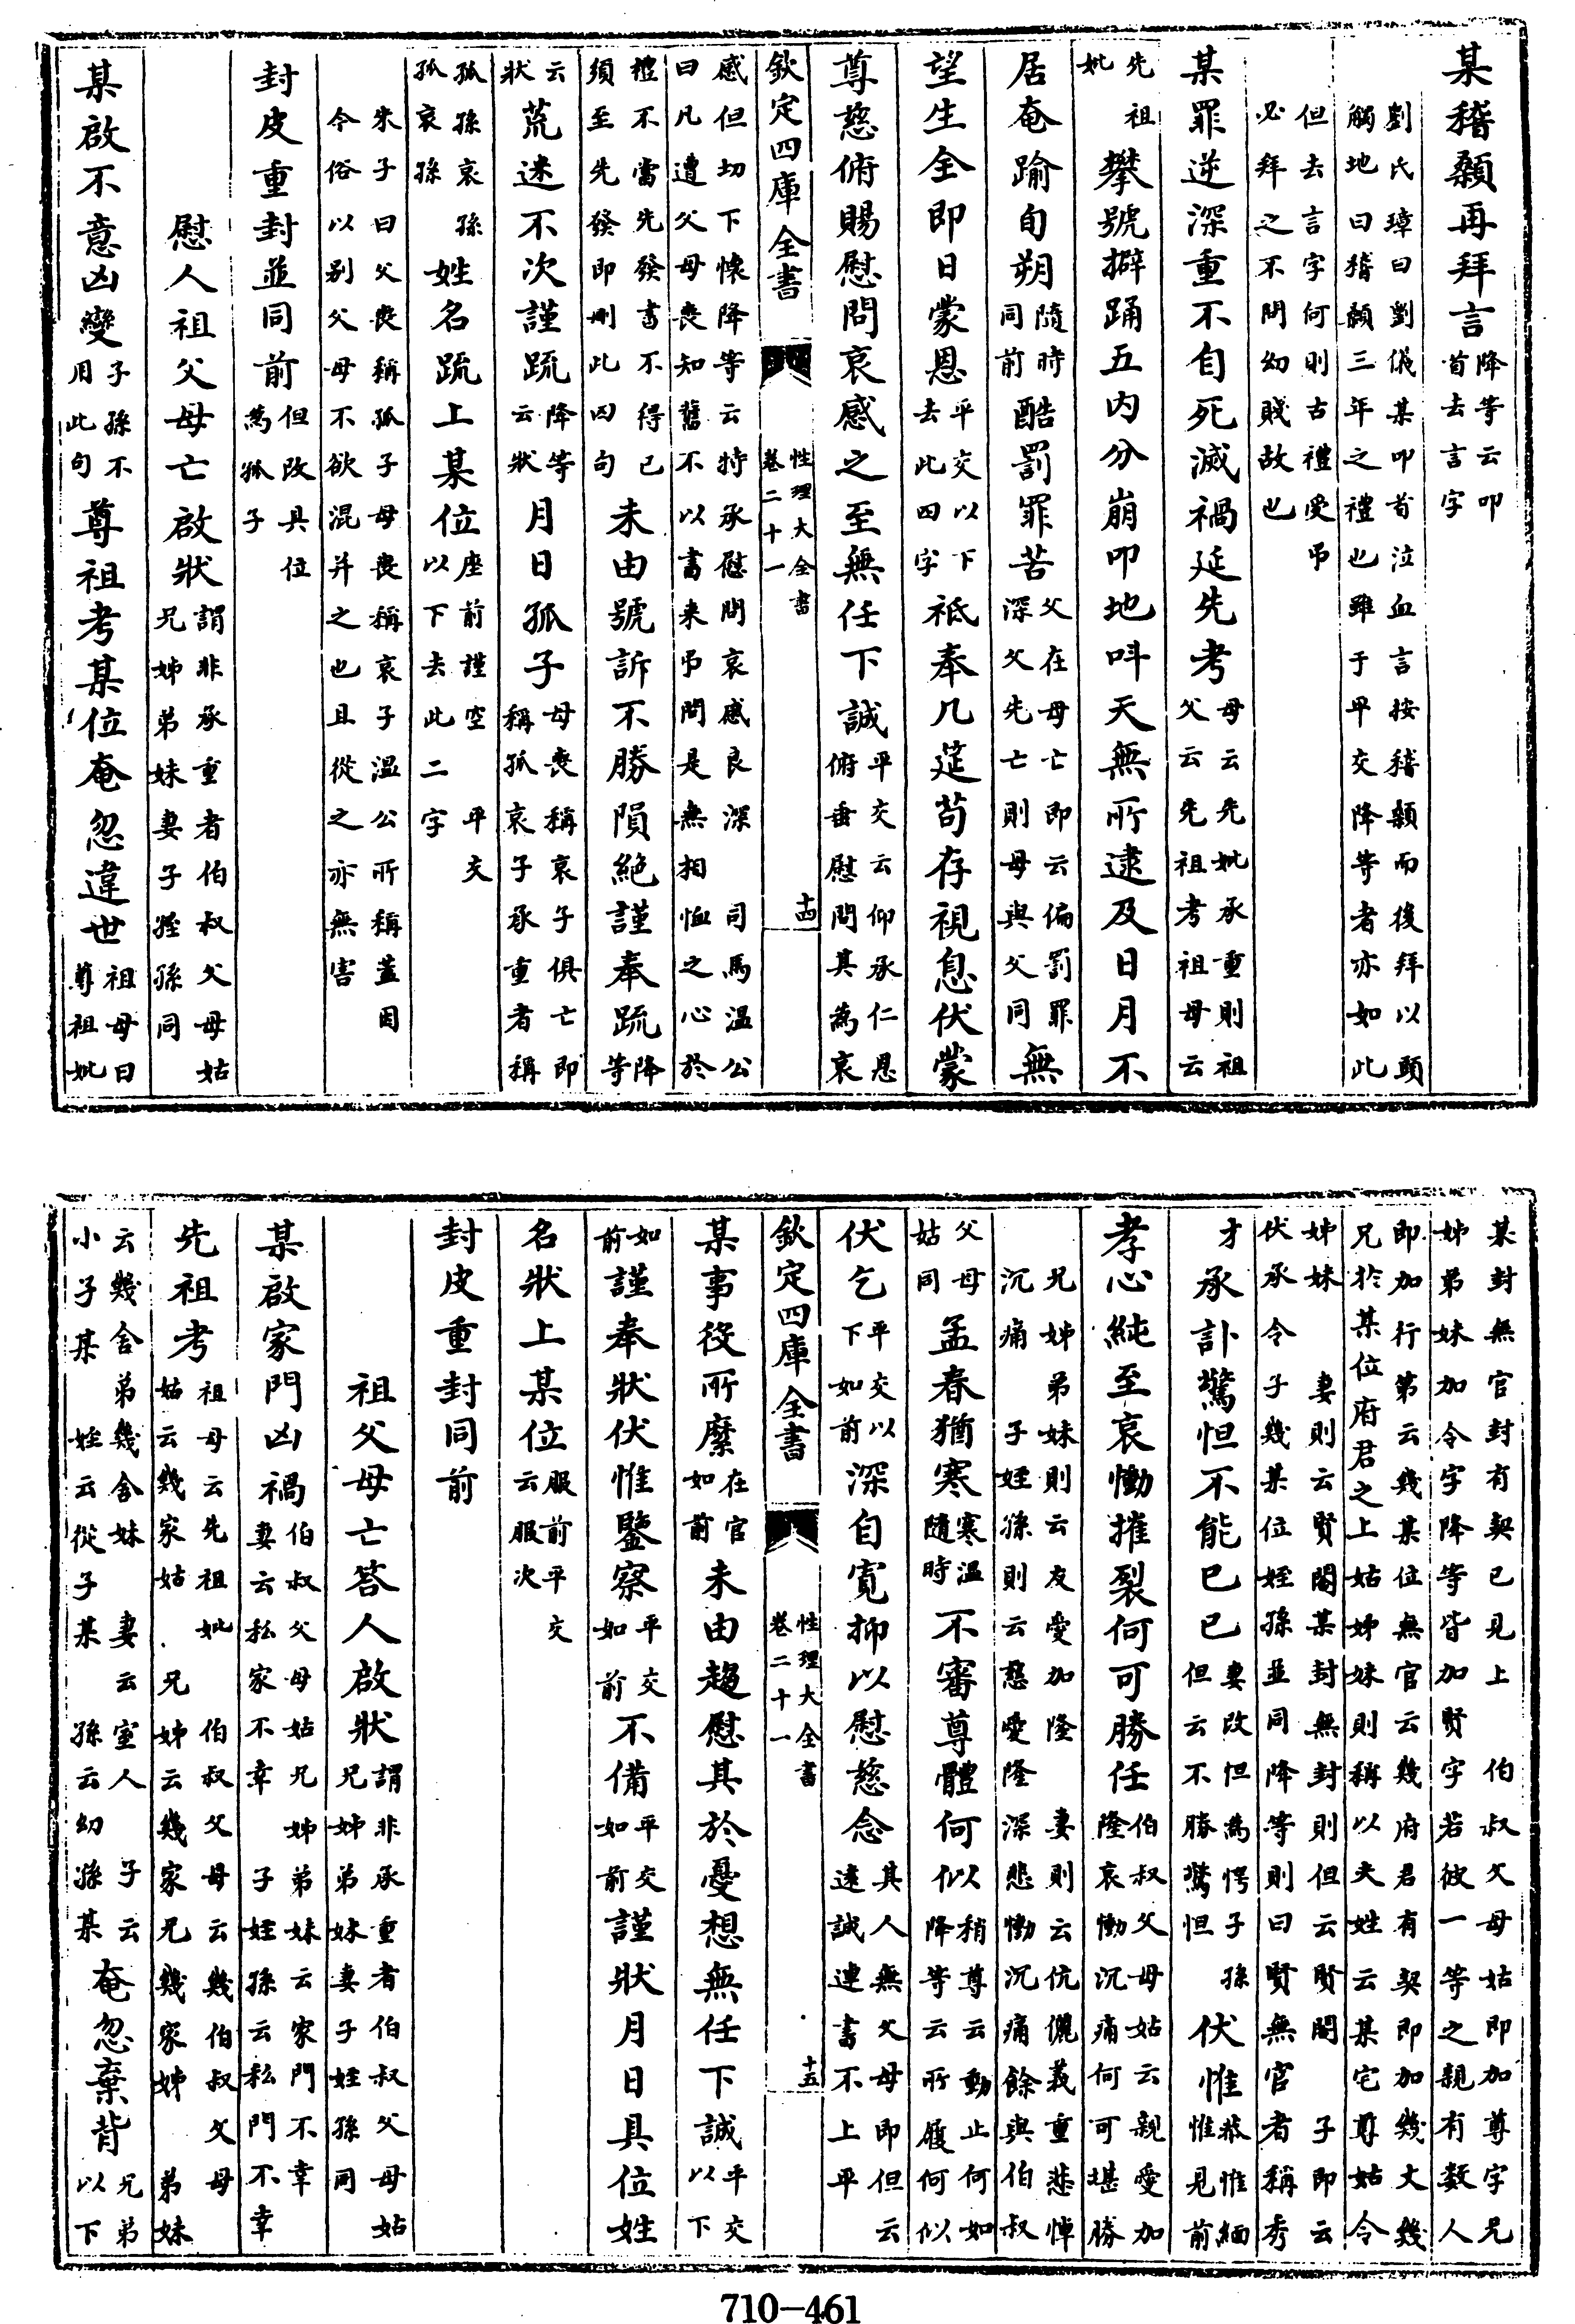 某稽顙再拜言降等云叩首去言字
劉氏璋曰劉儀某叩首泣血言按稽顙而後拜以頭
觸地曰稽顙三年之禮也雖于平交降等者亦如此
但去言字何則古禮受弔
必拜之不問幼賤故也
某罪逆深重不自死滅禍延先考母云先妣承重則祖父云先祖考祖母云
先祖妣攀號擗踊五內分崩叩地叫天無所逮及日月不
居奄踰旬朔隨時同前酷罰罪苦父在母亡即云偏罰罪深父先亡則母與父同無
望生全即日蒙恩平交以下去此四字祗奉几筵苟存視息伏蒙
尊慈俯賜慰問哀感之至無任下誠平交云仰承仁恩俯垂慰問其為哀
欽定四庫全書
性理大全書
卷二十一
十四
感但切下懷降等云特承慰問哀感良深 司馬溫公
曰凡遭父母喪知舊不以書来弔問是無相恤之心於
禮不當先發書不得已須至先發即刪此四句未由號訴不勝隕絕謹奉疏降等
云狀荒迷不次謹疏降等云狀月日孤子母喪稱哀子俱亡即稱孤哀子承重者稱
孤孫哀孫孤哀孫姓名疏上某位座前謹空 平交以下去此二字
朱子曰父喪稱孤子母喪稱哀子溫公所稱蓋因
今俗以别父母不欲混并之也且從之亦無害
封皮重封並同前但改具位為孤子
慰人祖父母亡啟狀謂非承重者伯叔父母姑兄姊弟妹妻子姪孫同
某啟不意凶變子孫不用此句尊祖考某位奄忽違世祖母曰尊祖妣
某封無官封有契已見上 伯叔父母姑即加尊字兄
姊弟妹加令字降等皆加賢字若彼一等之親有數人
即加行第云幾某位無官云幾府君有契即加幾丈幾
兄於某位府君之上姑姊妹則稱以夫姓云某宅尊姑令
姊妹 妻則云賢閤某封無封則但云賢閤 子即云
伏承令子幾某位姪孫並同降等則曰賢無官者稱秀
才承訃驚怛不能已已妻改怛為愕子孫但云不勝驚怛伏惟恭惟緬惟見前
孝心純至哀慟摧裂何可勝任伯叔父母姑云親愛加隆哀慟沉痛何可堪勝
兄姊弟妹則云友愛加隆 妻則云伉儷義重悲悼
沉痛 子姪孫則云慈愛隆深悲慟沉痛餘與伯叔
父母姑同孟春猶寒寒温隨時不審尊體何似稍尊云動止何如降等云所履何似
伏乞平交以下如前深自寬抑以慰慈念其人無父母即但云遠誠連書不上平
欽定四庫全書
性理大全書
卷二十一
十五
某事役所縻在官如前未由趨慰其於憂想無任下誠平交以下
如前謹奉狀伏惟鑒察平交如前不備平交如前謹狀月日具位姓
名狀上某位服前平交云服次
封皮重封同前
祖父母亡答人啟狀謂非承重者伯叔父母姑兄姊弟妹妻子姪孫同
某啟家門凶禍伯叔父母姑兄姊弟妹云家門不幸妻云私家不幸 子姪孫云私門不幸
先祖考祖母云先祖妣 伯叔父母云幾伯叔父母姑云幾家姑 兄姊云幾家兄幾家姊 弟妹
云幾舍弟幾舍妹 妻云室人 子云小子某 姪云從子某 孫云幼孫某奄忽棄背兄弟以下
710-461